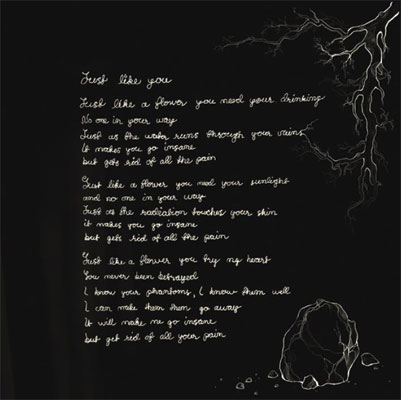 Just like you
Just like a flower you need your drinking
No one in your way
Just as the water runs through your veins
It makes you go insane
but gets rid of all the pain
Just like a flower you need your sunlight
and no one in your way
Just as the radiation touches your skin
it makes you go insane
but gets rid of all the pain
Just like a flower you try my heart
You never been betrayed
I know your phantoms, I know them well
I can make them them go away
It will make me go insane
but get rid of all your pain